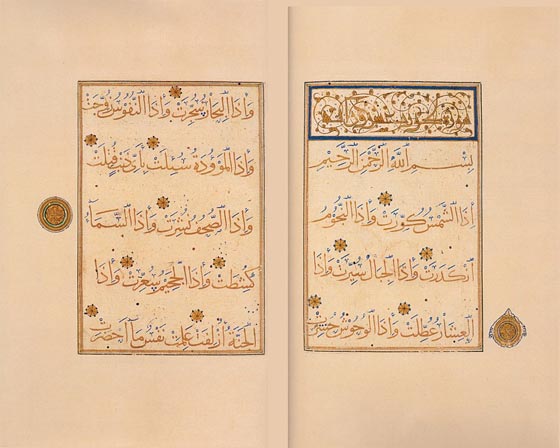 بِسْمِ اللَّهِ الرَّحْمَنِ الرَّحِيْمِ
اِذَا الشَّمْسُ كُوِّرَتْ وَاِذَا النُّجُوْمُ
انْكَدَرَتْ وَاِذَا الْجِبَالُ سُيِّرَتْ وَاِذَا
الْعِشَارُ عُطِّلَتْ وَاِذَا الْوُحُوْشُ حُشِرَتْ
وَاِذَا الْبِحَارُ سُجِّرَتْ وَاِذَا النُّفُوْسُ زُوِّجَتْ
وَاِذَا الْمَوْءُدَةُ سُئِلَتْ بِاَيِّ ذَنْبٍ قُتِلَتْ
وَاِذَا الصُّحُفُ نُشِرَتْ وَاِذَا السَّمَآءُ
كُشِطَتْ وَاِذَا الْجَحِيْمُ سُعِّرَتْ وَاِذَا
الْجَنَّةُ اُزْلِفَتْ عَلِمَتْ نَفْسٌ مَآ اَحْضَرَتْ